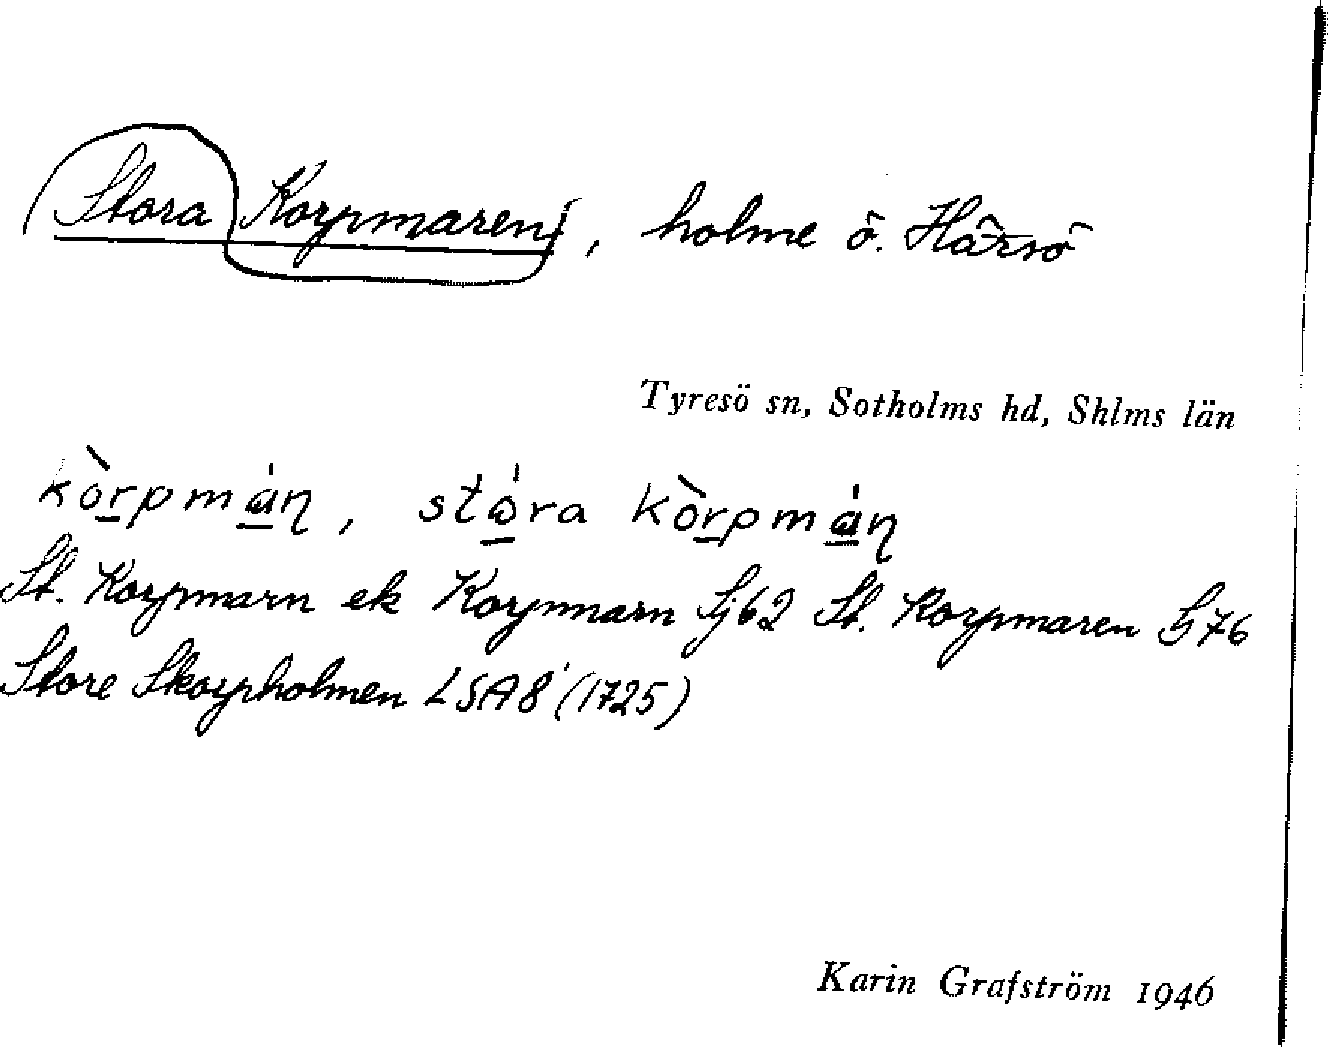 Stora Korpmaren, holme ö. Hårsö
Tyresö sn, Sotholms hd, Shlms län
kòrpmán, stóra kòrpmán
St. Korpmarn ek Korpmarn Sj62 St. Korpmaren G76
Store Skorpholmen LSA8 (1725)
Karin Grafström 1946